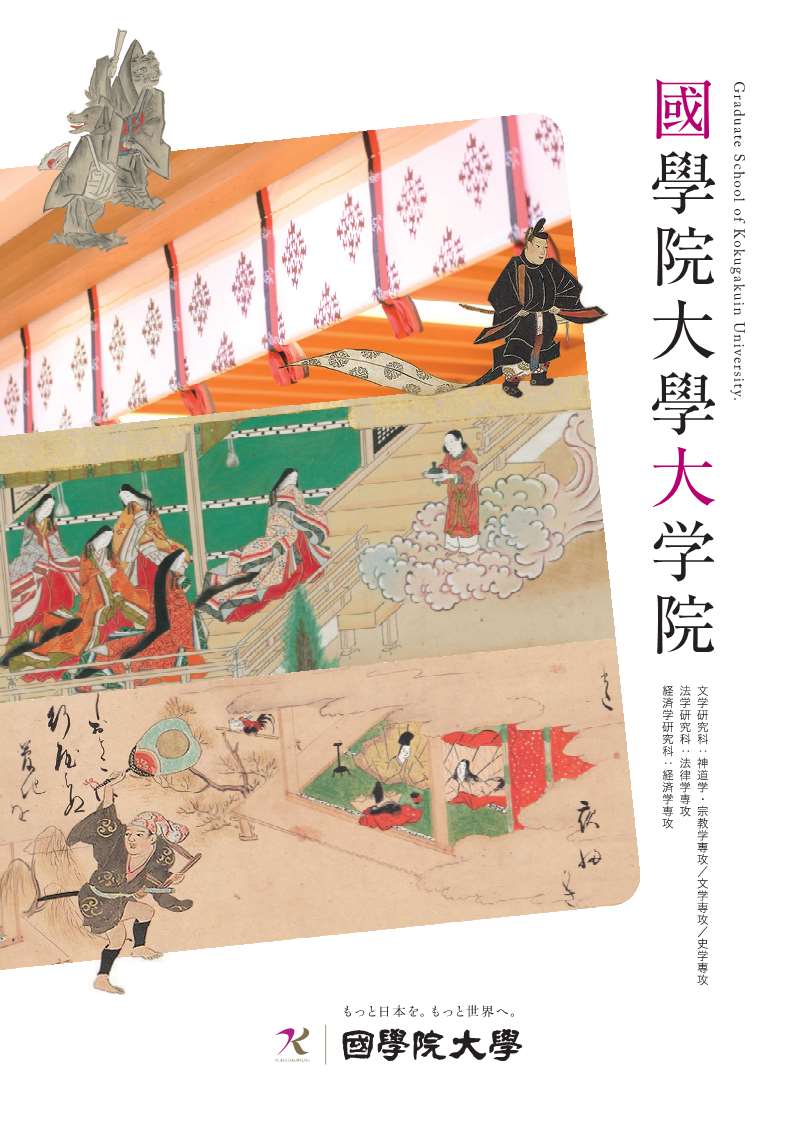 Graduate School of Kokugakuin University.
國學院大學大学院
文学研究科：神道学・宗教学専攻／文学専攻／史学専攻
法学研究科：法律学専攻
経済学研究科：経済学専攻
もっと日本を。もっと世界へ。
國學院大學